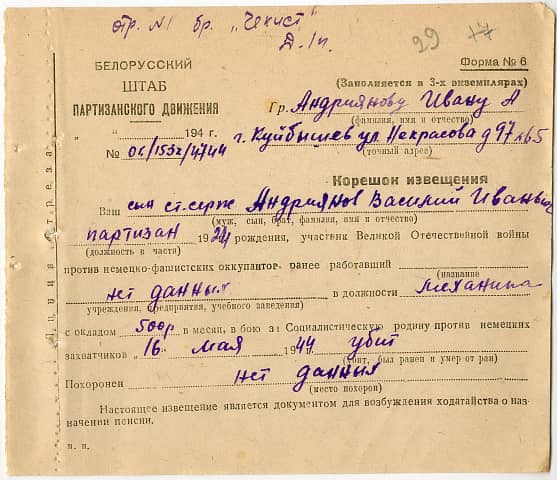 отр. №1 бр. „Чекист"
Д. 1п.
29 17
БЕЛОРУССКИЙ
ШТАБ
ПАРТИЗАНСКОГО ДВИЖЕНИЯ
Форма № 6
(Заполняется в 3-х экземплярах)
Гр. Андриянову Ивану А
(фамилия, имя и отчество)
„ " 194 г.
г. Куйбышев ул Некрасова д 97 к 65
(точный адрес)
№ 06/1532/4744
Корешок извещения
Ваш сын ст. серж Андриянов Василий Иванович
(муж, сын, брат, фамилия, имя и отчество)
партизан 1924 рождения, участник Великой Отечественной войны
(должность и часть)
против немецко-фашистских оккупантов ранее работавший
(название
нет данных в должности механика
учреждения, предприятия, учебного заведения)
с окладом 500р в месяц, в бою за Социалистическую родину против немецких
захватчиков „16" мая 1944 убит
(убит, был ранен и умер от ран)
Похоронен нет данных
(место похорон)
Настоящее извещение является документом для возбуждения ходатайства о наз-
начении пенсии.
п. п.
Линия отреза